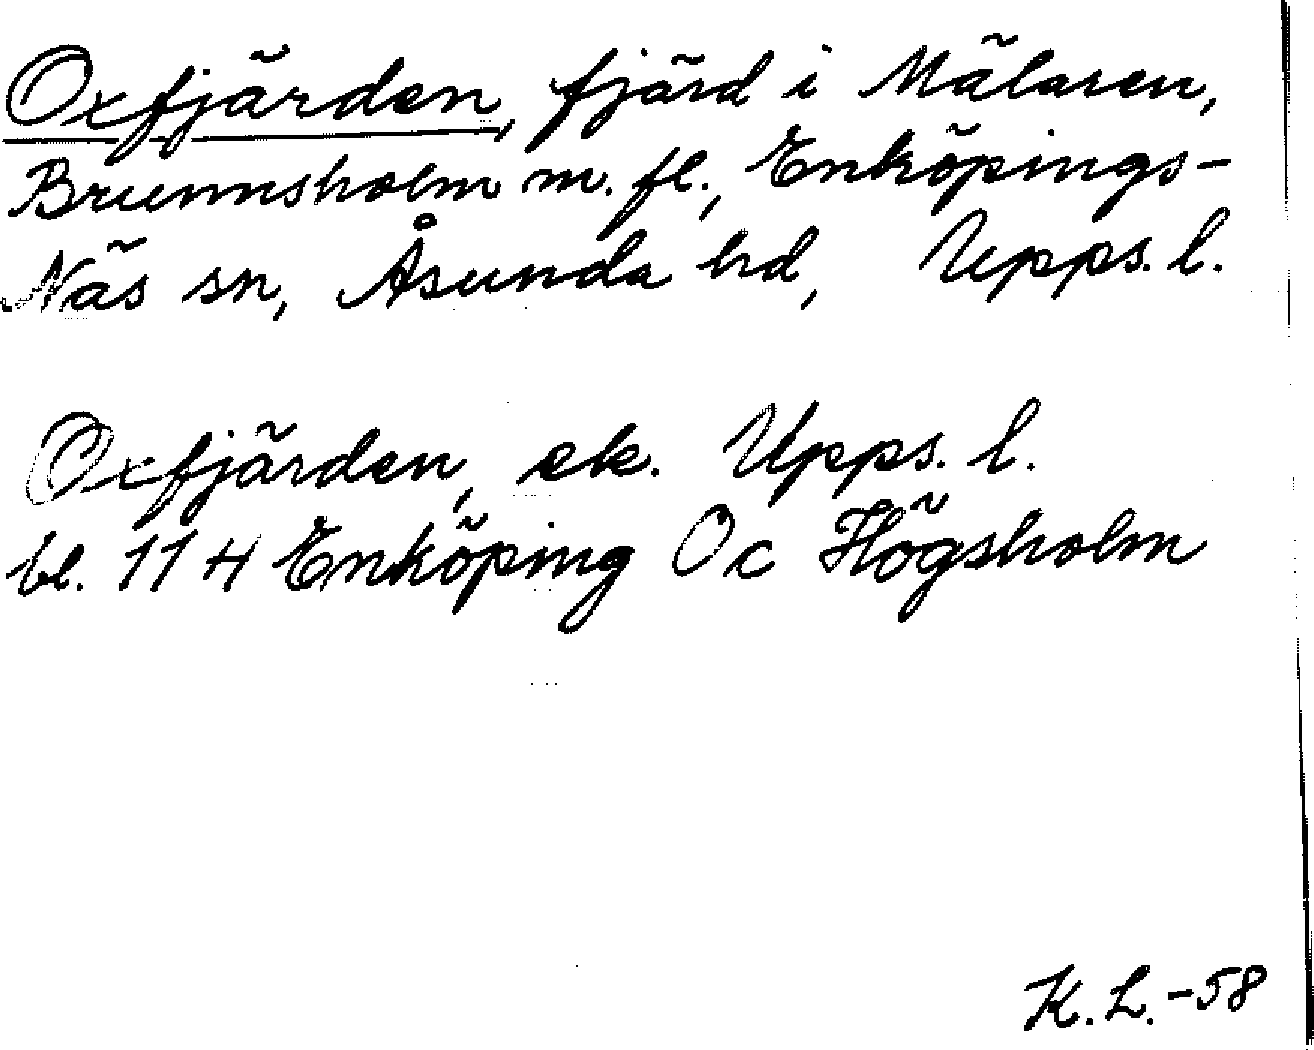 Oxfjärden, fjärd i Mälaren,
Brunnsholm m. fl., Enköpings-
Näs sn, Åsunda hd, Upps. l.
Oxfjärden, ek. Upps. l.
bl. 114 Enköping Oc Högsholm
K. L. -58